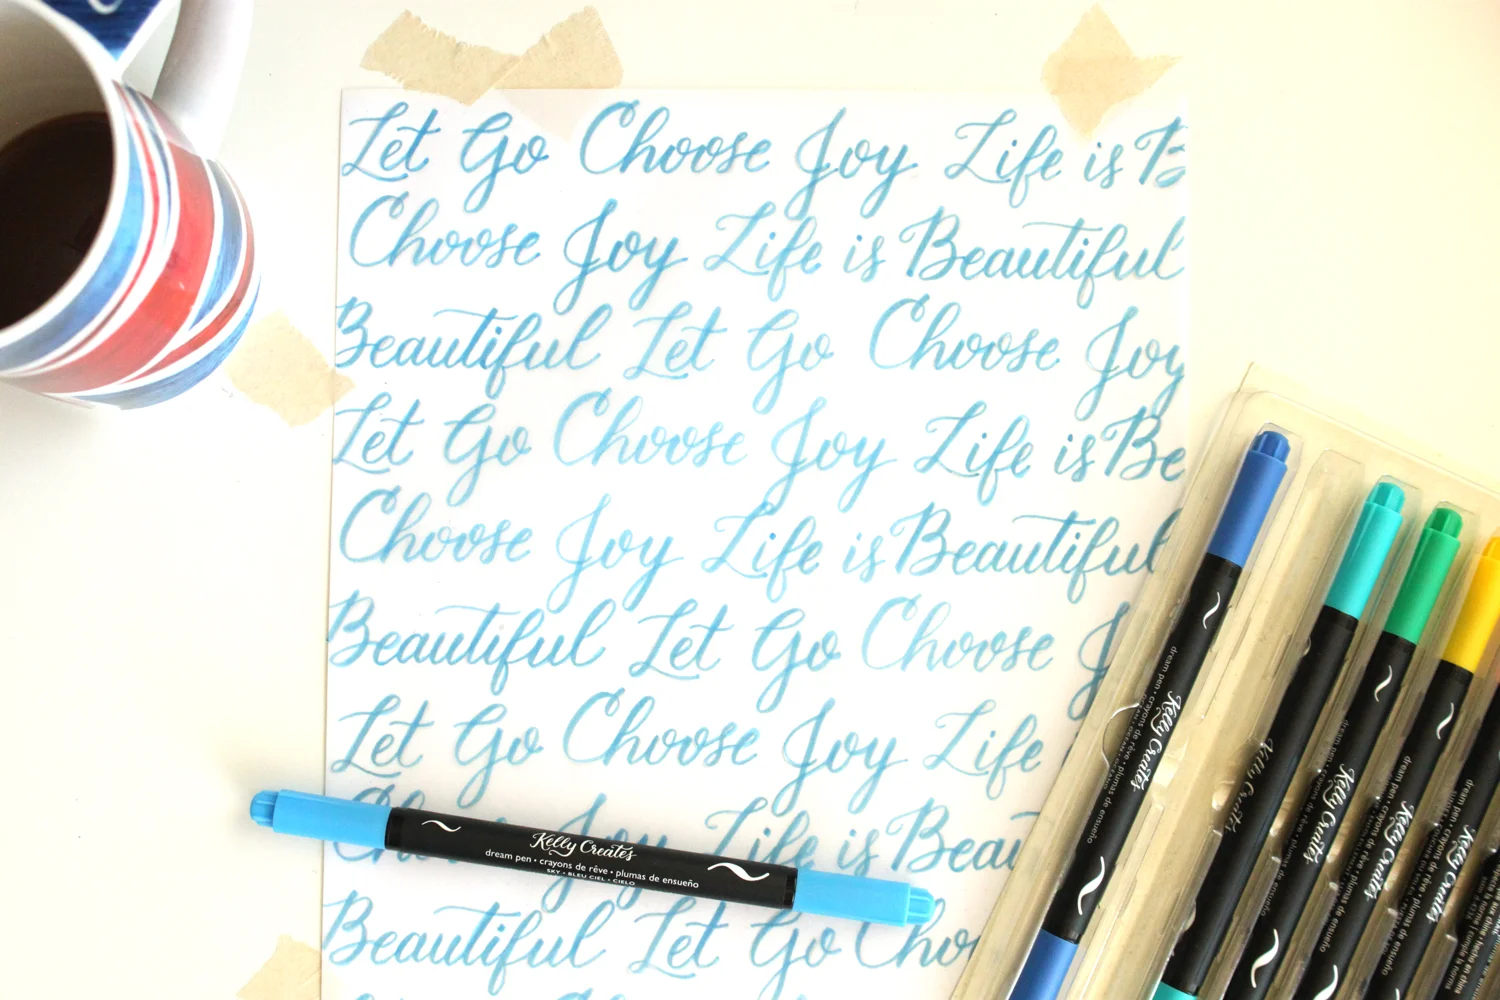 Let Go Choose Joy Life is B
Choose Joy Life is Beautiful
Beautiful Let Go Choose Joy
Let Go Choose Joy Life is Be
Choose Joy Life is Beautiful
Beautiful Let Go Choose J
Let Go Choose Joy Life
Joy Life is Beau
Beautiful Let Go Choo
Kelly Creates
dream pen • crayons de rêve • plumas de ensueño
SKY • BLEU CIEL • CIELO
Kelly Creates
dream pen • crayons de rêve • plumas de ensueño
Kelly Creates
Kelly Creates
dream pen • crayons de rêve • plumas de ensueño
Kelly Creates
dream pen • crayons de rêve • plumas de ensueño
Kelly Creates